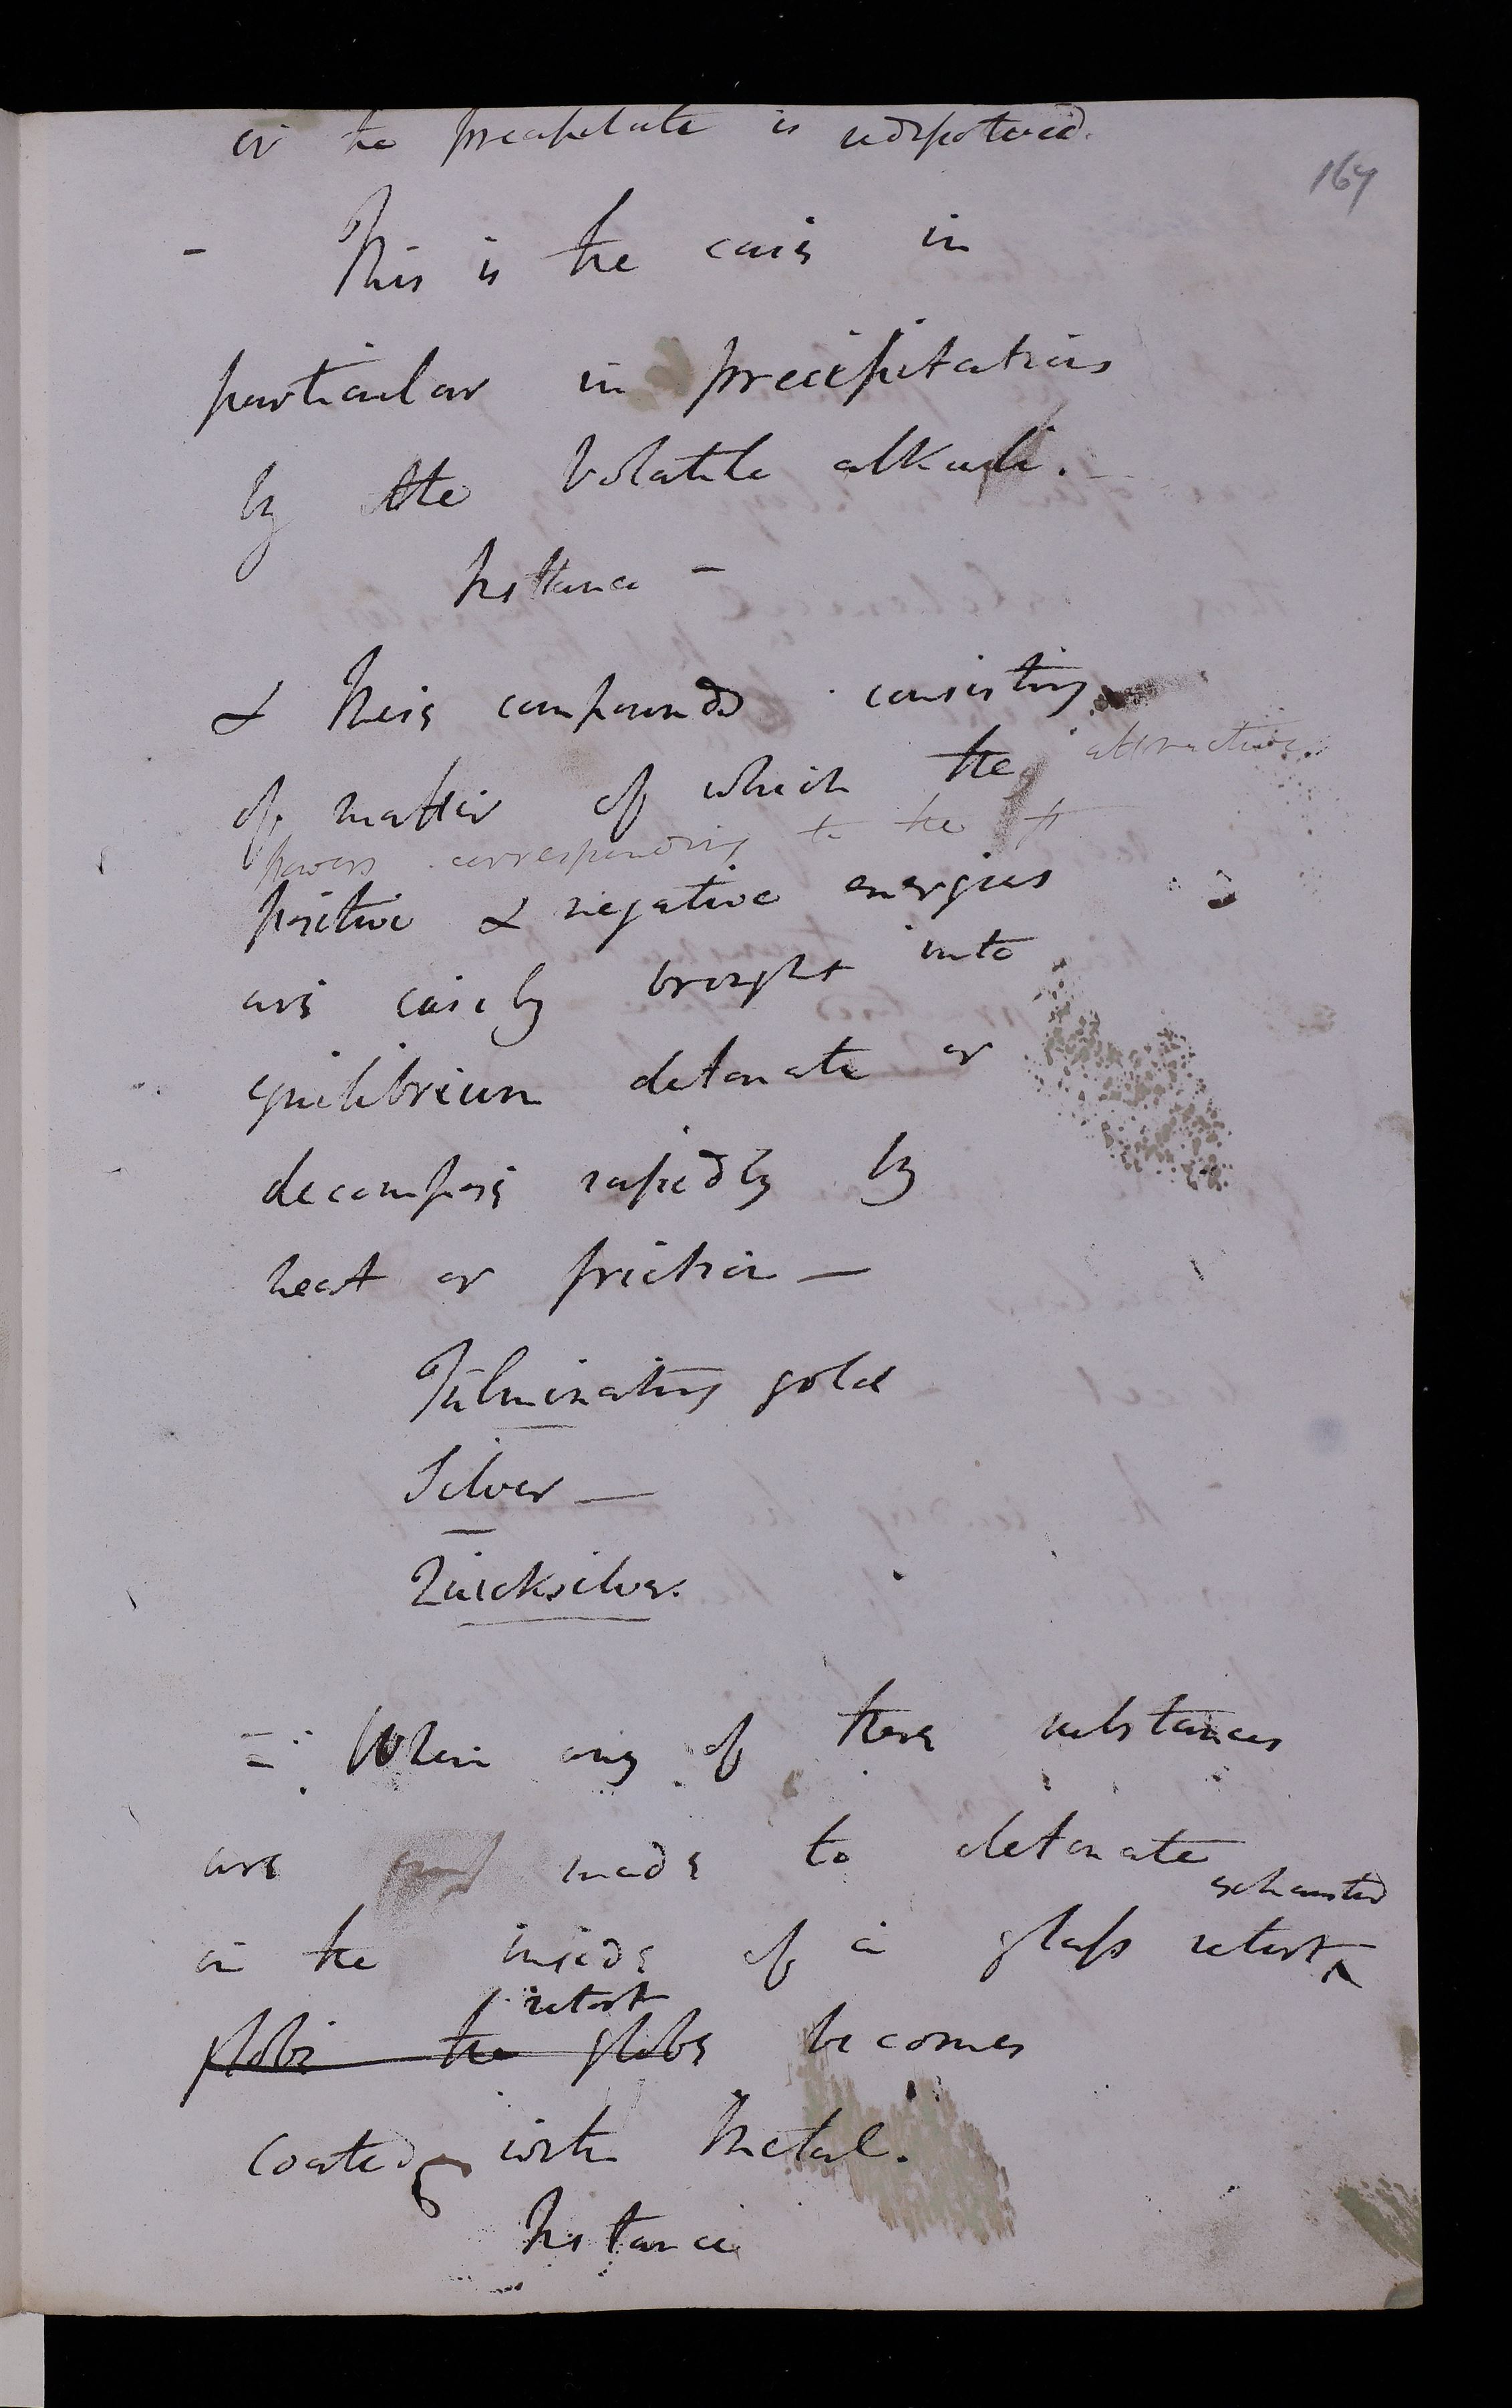 or the precipitate is redissolved.
167
- This is the case in
particular in precipitations
by the Volatile alkali.
Instance -
& these compounds consisting
of matter of which the attractive
powers corresponding to the
positive & negative energies
are easily brought into
equilibrium detonate or
decompose rapidly by
heat or friction —
Fulminating gold
Silver —
Quicksilver.
= When any of these substances
are made to detonate
exhausted
in the inside of a glass retort ^
retort
globe the globe becomes
coated with Metal.
Instance